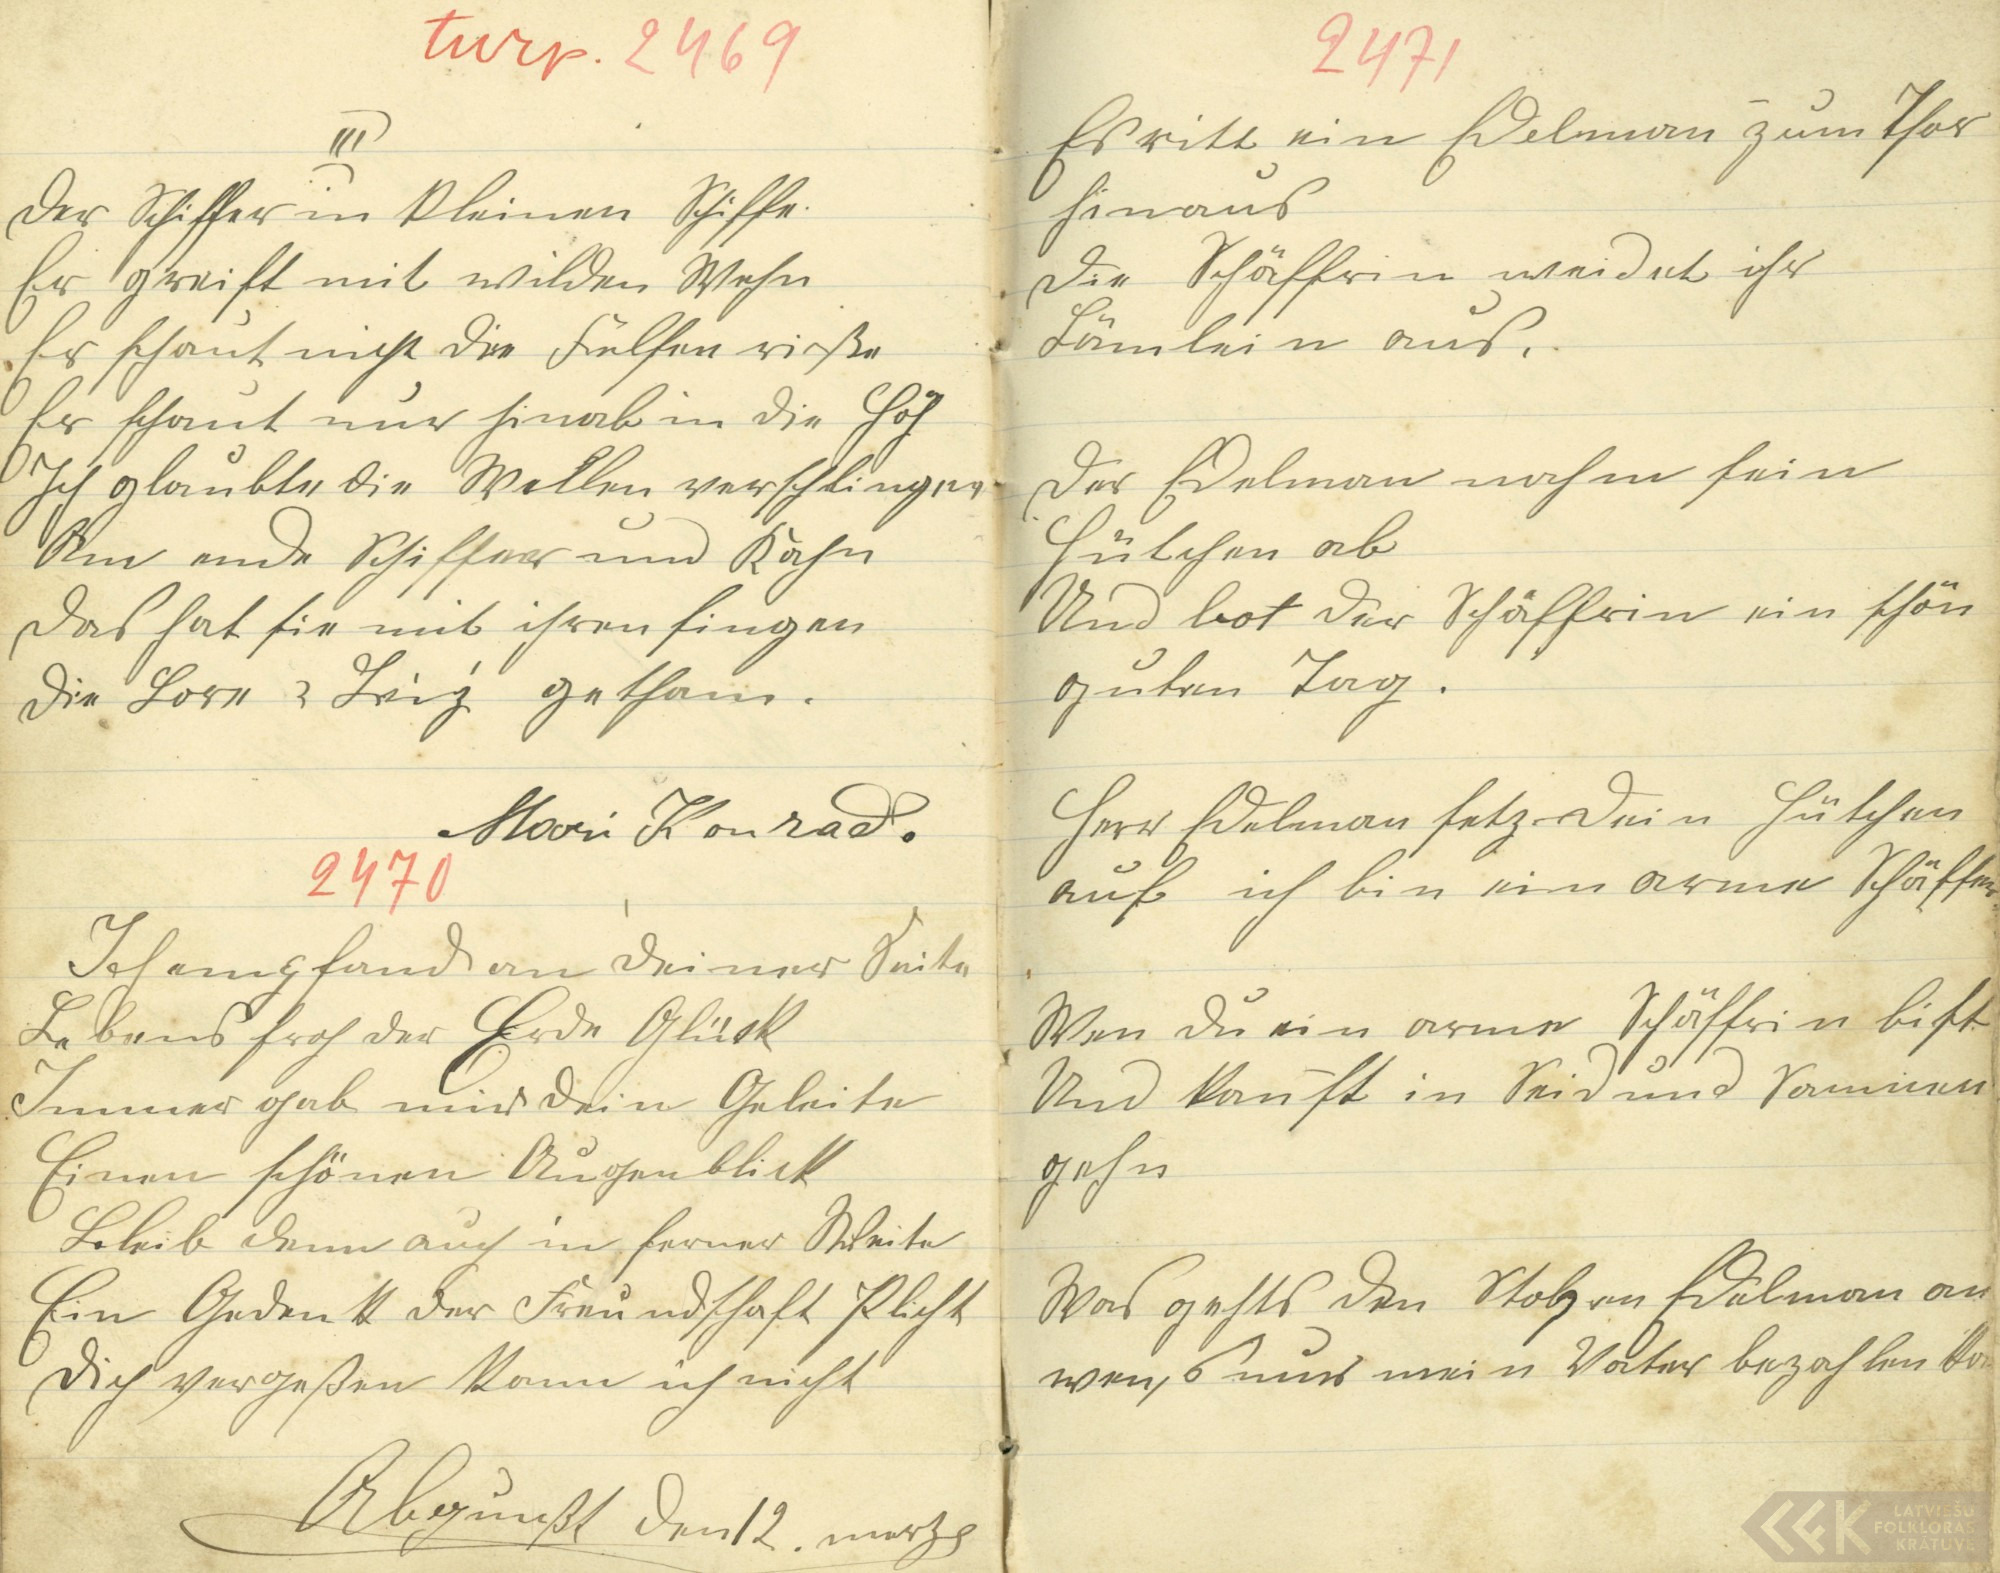 turp. 2469
III
Der Schiffer in kleinen Schiffe.
Er greift mit wilden Wehn
Er schaut nicht die Felsen rieße
Er schaut nur hinab in die Höh
Ich glaubte die Wellen verschlingen
Am ende Schiffer und Kahn
Das hat sie mit ihren singen
Die Lore gethann.
Mari Konrad.
2470
Ich empfand an deiner Seite
Lebens froh der Erde Glück
Immer gab mir dein Geleite
Einen schönen Augenblick
Bleib denn auch in ferner Weite
Ein Gedenk der Freundschaft Plicht
Dich vergeßen kann ich nicht
Abgunßt den 12. mertz
2471
Es ritt ein Edelman zum Thor
hinaus
die Schäffrin weidet ihr
Lämlein aus.
Der Edelman nahm sein
Hütchen ab
Und bot der Schäffrin ein schön
guten Tag.
Herr Edelman setz dein Hütchen
auf ich bin ein arme Schäffer
Wen du ein arme Schäffrin bist
Und kanst in Seid und Sammen
gehn
Was gehts den Stolzen Edelman an
wen,s nur mein Vater bezahlen
LATVIEŠU
FOLKLORAS
KRĀTUVE